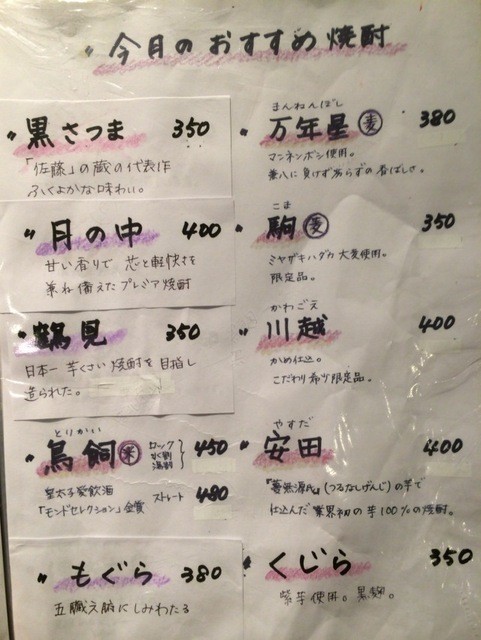 今月のおすすめ焼酎
黒さつま 350
「佐藤」の蔵の代表作
ふくよかな味わい。
月の中 400
甘い香りで 芯と軽快さを
兼ね備えたプレミア焼酎
鶴見 350
日本一 芋くさい 焼酎を 目指し
造られた。
とりかい
鳥飼 米 ロック 水割 湯割 450
皇太子愛飲酒 ストレート 480
「モンドセレクション」金賞
もぐら 380
五臓六腑にしみわたる
まんねんぼし
万年星 麦 380
マンネンボシ使用。
兼八に負けずあらずの香ばしさ。
こま
駒 麦 350
ミヤザキハダカ大麦使用。
限定品。
かわごえ
川越 400
かめ仕込。
こだわり 限定品。
やすだ
安田 400
『蔓無源氏』(つるなしげんじ)の芋で
仕込んだ 業界初の芋100%の焼酎。
くじら 350
紫芋使用。黒麹。